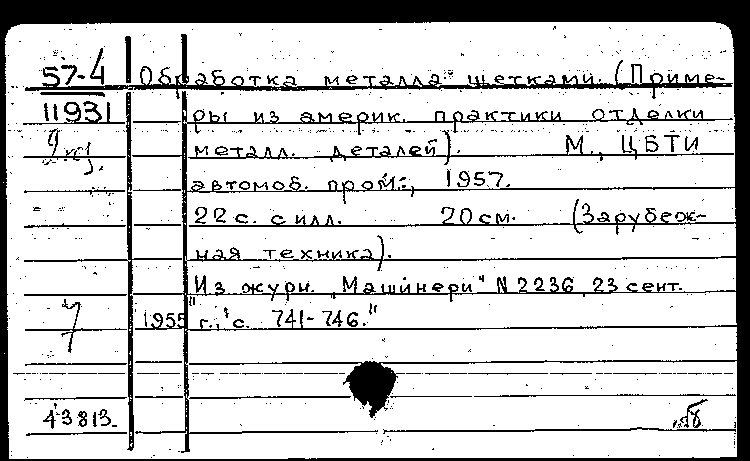 57-4 Обработка металла щетками. (Приме-
11931 ры из америк. практики отделки
2 экз. металл. деталей). М., ЦБТИ
автомоб. пром., 1957.
22 с. с илл. 20 см. (Зарубеж-
ная техника).
Из журн. "Машинери" N 2236, 23 сент.
1955 г., с. 741-746."
43813